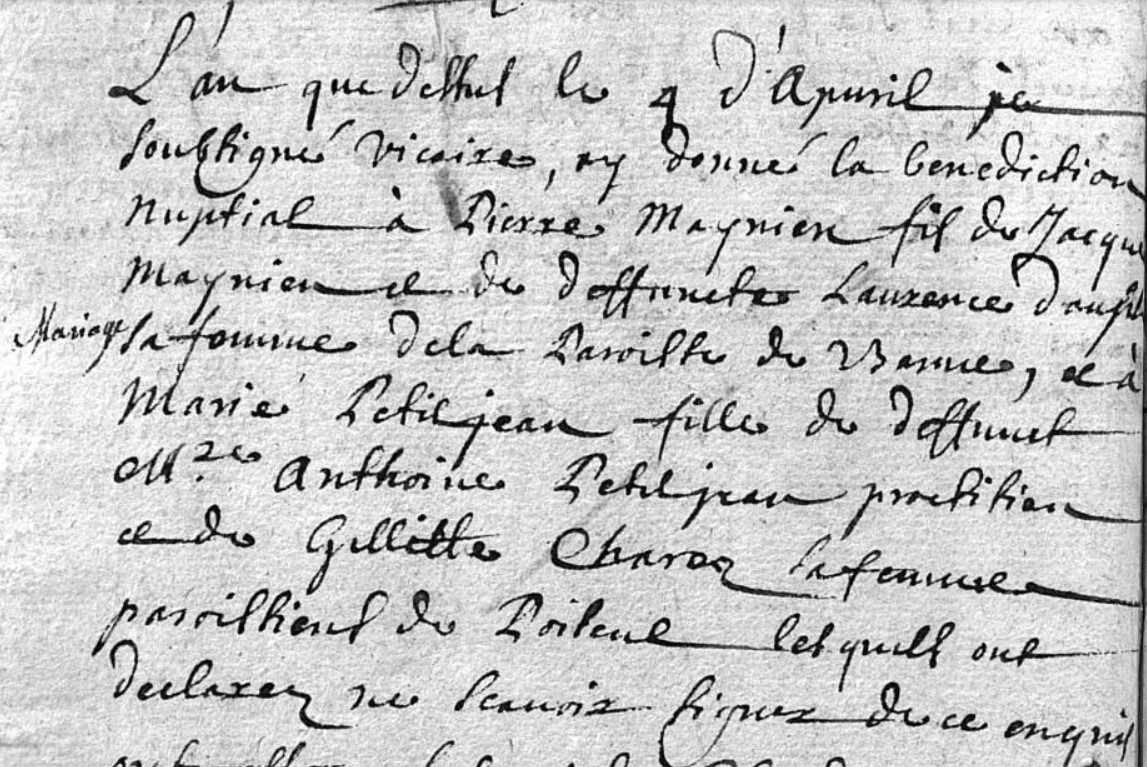 L'an que dessus le 4 d'Apuril je
soubsigné vicaire, ay donné la benediction
nuptial à Pierre Maynien fils de Jacque
Maynien et de deffuncte Laurence
Mariage
sa femme de la Paroisse de, et à
Marie Petitjean fille de deffunct
Mre Anthoine Petitjean practitien
et de Gillitte sa femme
paroissiens de lesquells ont
declarez ne scauoir signer de ce enquis